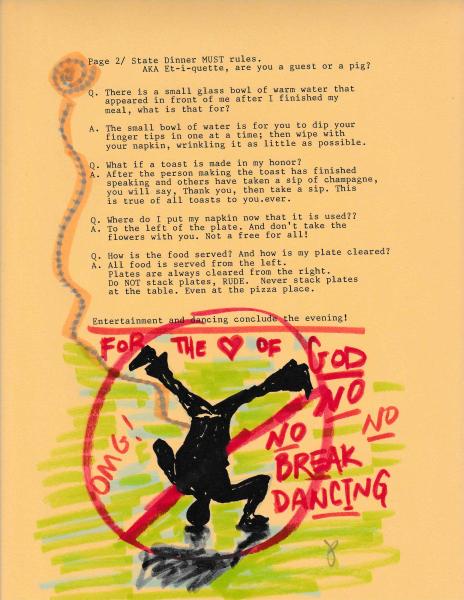 Page 2/ State Dinner MUST rules.
AKA Et-i-quette, are you a guest or a pig?
Q. There is a small glass bowl of warm water that
appeared in front of me after I finished my
meal, what is that for?
A. The small bowl of water is for you to dip your
finger tips in one at a time; then wipe with
your napkin, wrinkling it as little as possible.
Q. What if a toast is made in my honor?
A. After the person making the toast has finished
speaking and others have taken a sip of champagne,
you will say, Thank you, then take a sip. This
is true of all toasts to you.ever.
Q. Where do I put my napkin now that it is used??
A. To the left of the plate. And don't take the
flowers with you. Not a free for all!
Q. How is the food served? And how is my plate cleared?
A. All food is served from the left.
Plates are always cleared from the right.
Do NOT stack plates, RUDE. Never stack plates
at the table. Even at the pizza place.
Entertainment and dancing conclude the evening!
FOR THE ♥ OF GOD
NO
NO
NO
BREAK
DANCING
OMG!